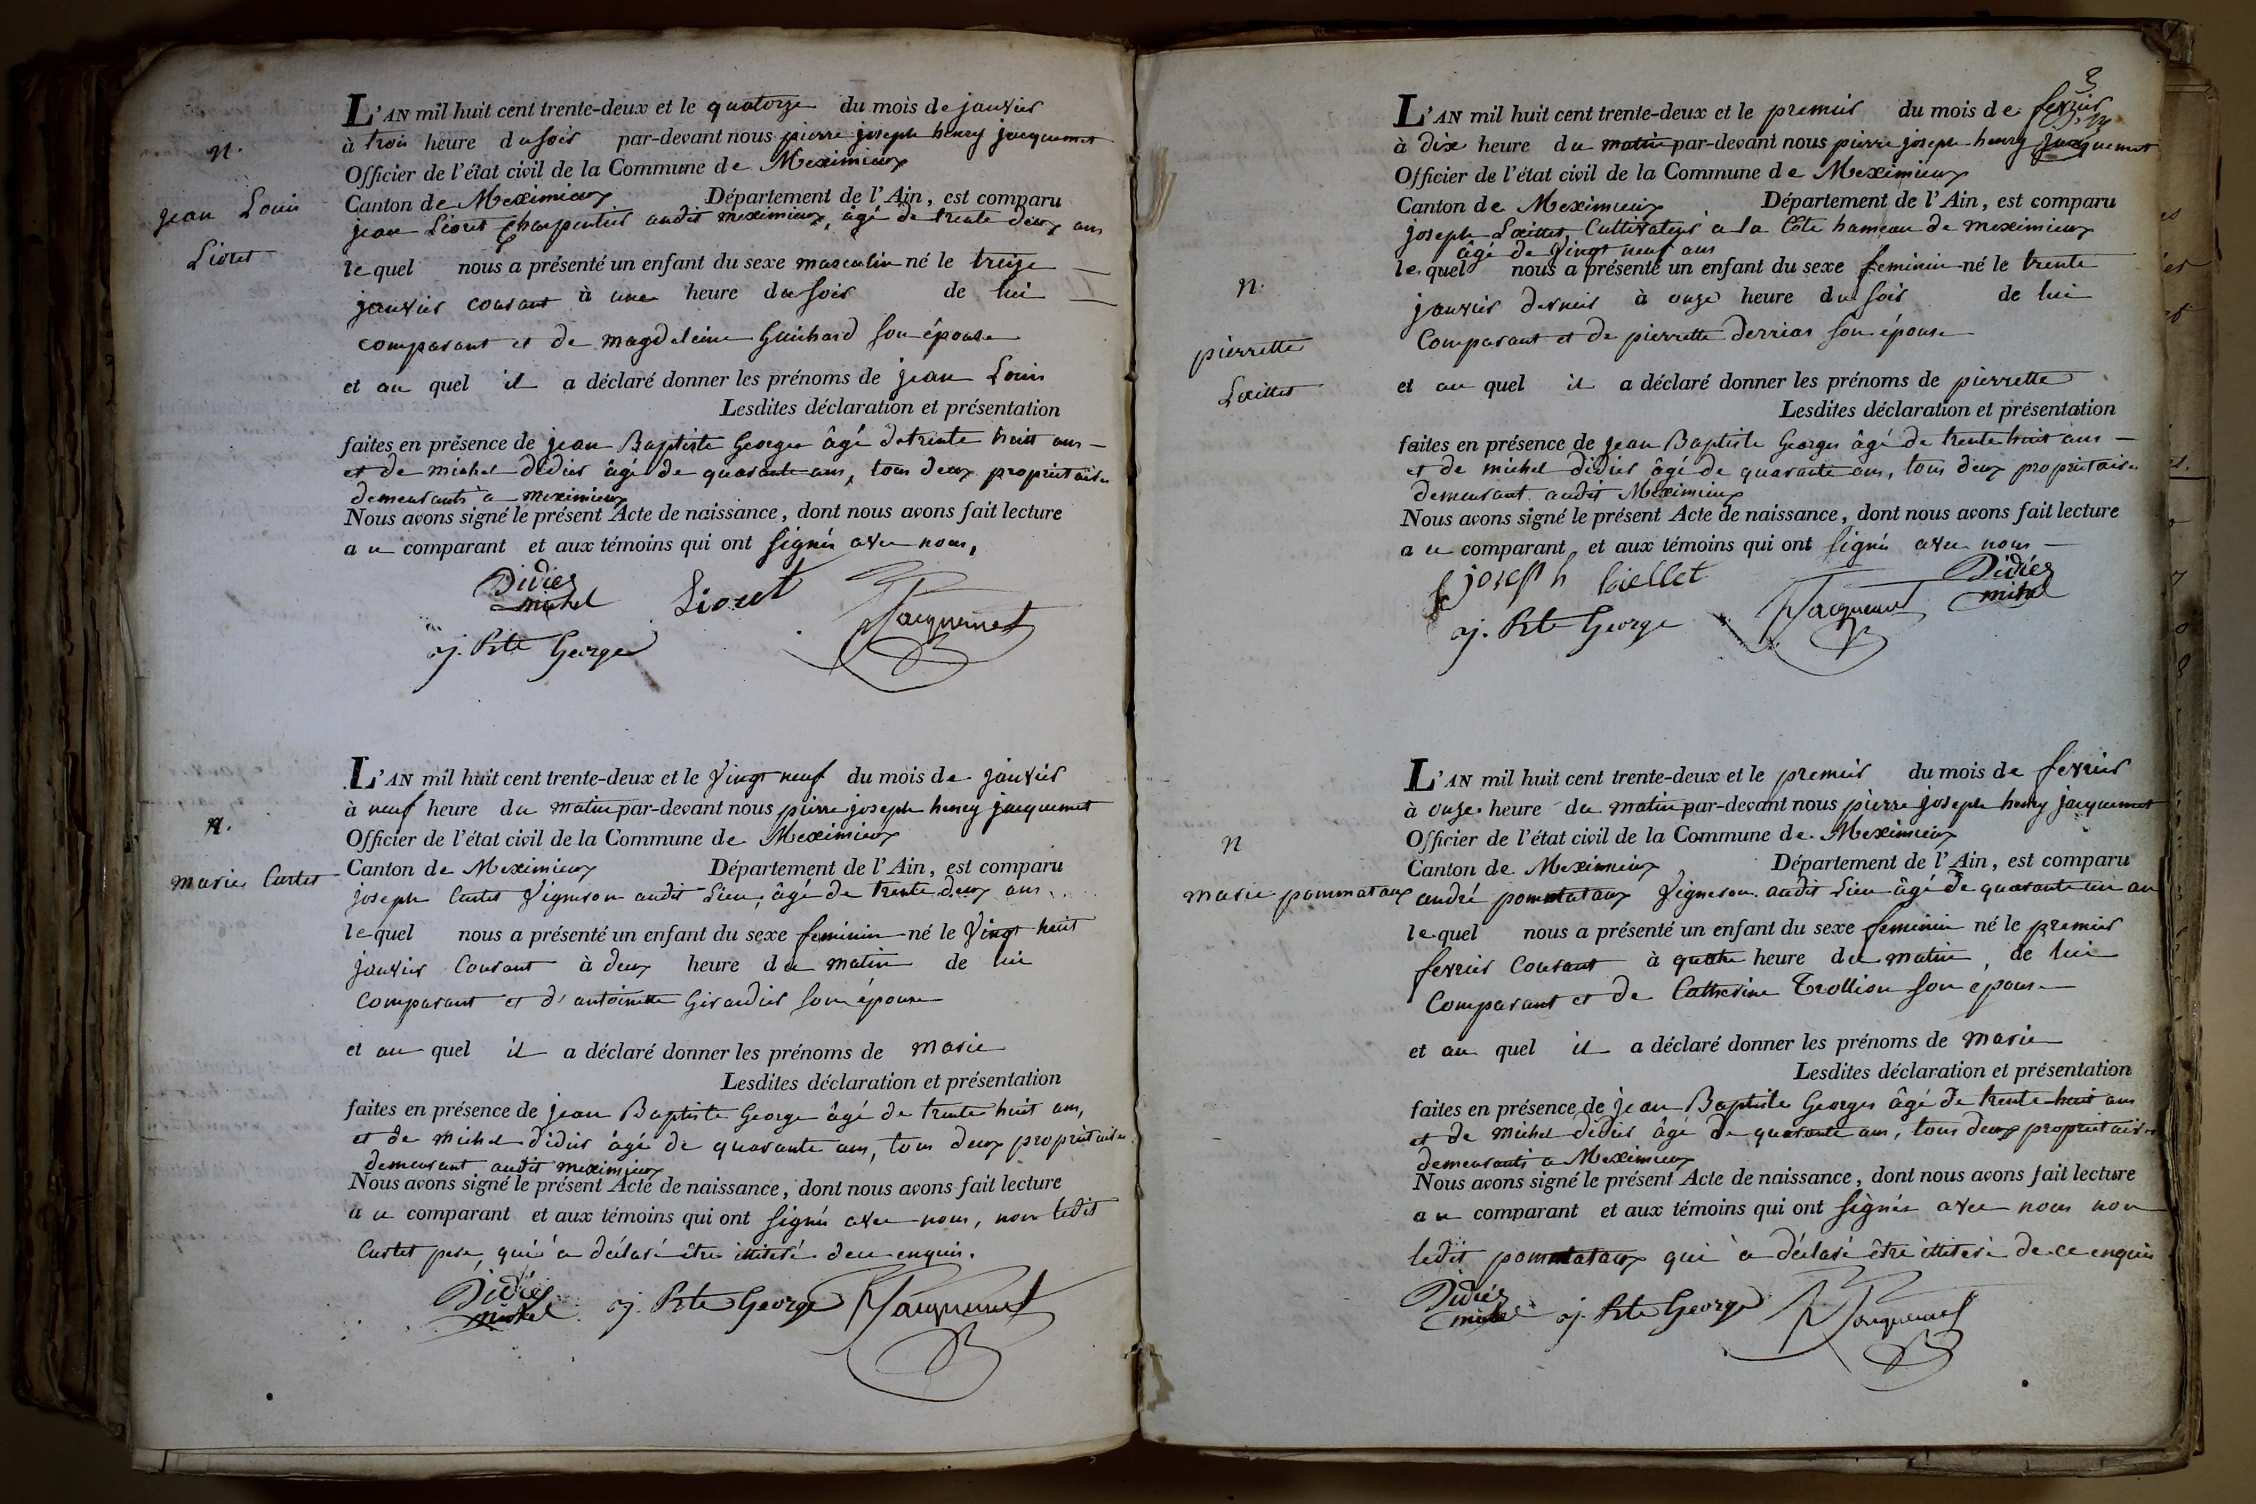 n.
jean Louis
Lioret
L'AN mil huit cent trente-deux et le quatorze du mois de janvier
à trois heure du soir par-devant nous pierre joseph henry jacquemet
Officier de l'état civil de la Commune de Meximieux
Canton de Meximieux Département de l'Ain, est comparu
jean Lioret Charpentier audit meximieux, âgé de trente deux ans
lequel nous a présenté un enfant du sexe masculin né le treize
janvier courant à une heure du soir de lui
comparant et de magdeleine Guichard son épouse
et au quel il a déclaré donner les prénoms de jean Louis
Lesdites déclaration et présentation
faites en présence de jean Baptiste Georges âgé de trente huit ans
et de michel didier âgé de quarante ans, tous deux propriétaires
demeurants a meximieux
Nous avons signé le présent Acte de naissance, dont nous avons fait lecture
au comparant et aux témoins qui ont signés avec nous,
Didier
michel
Lioret
Jacquemet
j. Bte George
n.
marie Curtet
L'AN mil huit cent trente-deux et le vingt neuf du mois de janvier
à neuf heure du matin par-devant nous pierre joseph henry jacquemet
Officier de l'état civil de la Commune de Meximieux
Canton de Meximieux Département de l'Ain, est comparu
joseph Curtet Vigneron audit Lieu, âgé de trente deux ans
lequel nous a présenté un enfant du sexe feminin né le vingt huit
janvier Courant à deux heure du matin de lui
comparant et d'antoinette Girardier son épouse
et au quel il a déclaré donner les prénoms de marie
Lesdites déclaration et présentation
faites en présence de jean Baptiste George âgé de trente huit ans,
et de michel didier âgé de quarante ans, tous deux propriétaires
demeurant audit meximieux
Nous avons signé le présent Acte de naissance, dont nous avons fait lecture
au comparant et aux témoins qui ont signés avec nous, non ledit
Curtet pere, qui a déclaré être illiteré de ce enquis.
Didier
michel
j. Bte George
Jacquemet
3
n.
pierrette
Loeillet
L'AN mil huit cent trente-deux et le premier du mois de fevrier
à dix heure du matin par-devant nous pierre joseph henry jacquemet
Officier de l'état civil de la Commune de Meximieux
Canton de Meximieux Département de l'Ain, est comparu
joseph Loeillet, Cultivateur à la Côte hameau de meximieux
âgé de vingt neuf ans
lequel nous a présenté un enfant du sexe feminin né le trente
janvier dernier à onze heure du soir de lui
Comparant et de pierrette derrias son épouse
et au quel il a déclaré donner les prénoms de pierrette
Lesdites déclaration et présentation
faites en présence de jean Baptiste Georges âgé de trente huit ans
et de michel didier âgé de quarante ans, tous deux propriétaires
demeurant audit Meximieux
Nous avons signé le présent Acte de naissance, dont nous avons fait lecture
au comparant et aux témoins qui ont signés avec nous
joseph loellet
Didier
michel
j. Bte George
Jacquemet
n
marie pommataux
L'AN mil huit cent trente-deux et le premier du mois de fevrier
à onze heure du matin par-devant nous pierre joseph henry jacquemet
Officier de l'état civil de la Commune de Meximieux
Canton de Meximieux Département de l'Ain, est comparu
andré pommataux Vigneron audit Lieu âgé de quarante un an
lequel nous a présenté un enfant du sexe feminin né le premier
fevrier Courant à quatre heure du matin, de lui
Comparant et de Catherine Trollion son épouse
et au quel il a déclaré donner les prénoms de marie
Lesdites déclaration et présentation
faites en présence de jean Baptiste Georges âgé de trente huit ans
et de michel didier âgé de quarante ans, tous deux propriétaires
demeurants a Meximieux
Nous avons signé le présent Acte de naissance, dont nous avons fait lecture
au comparant et aux témoins qui ont signés avec nous non
ledit pommataux qui a déclaré être illiteré de ce enquis
Didier
michel
j. Bte George
Jacquemet